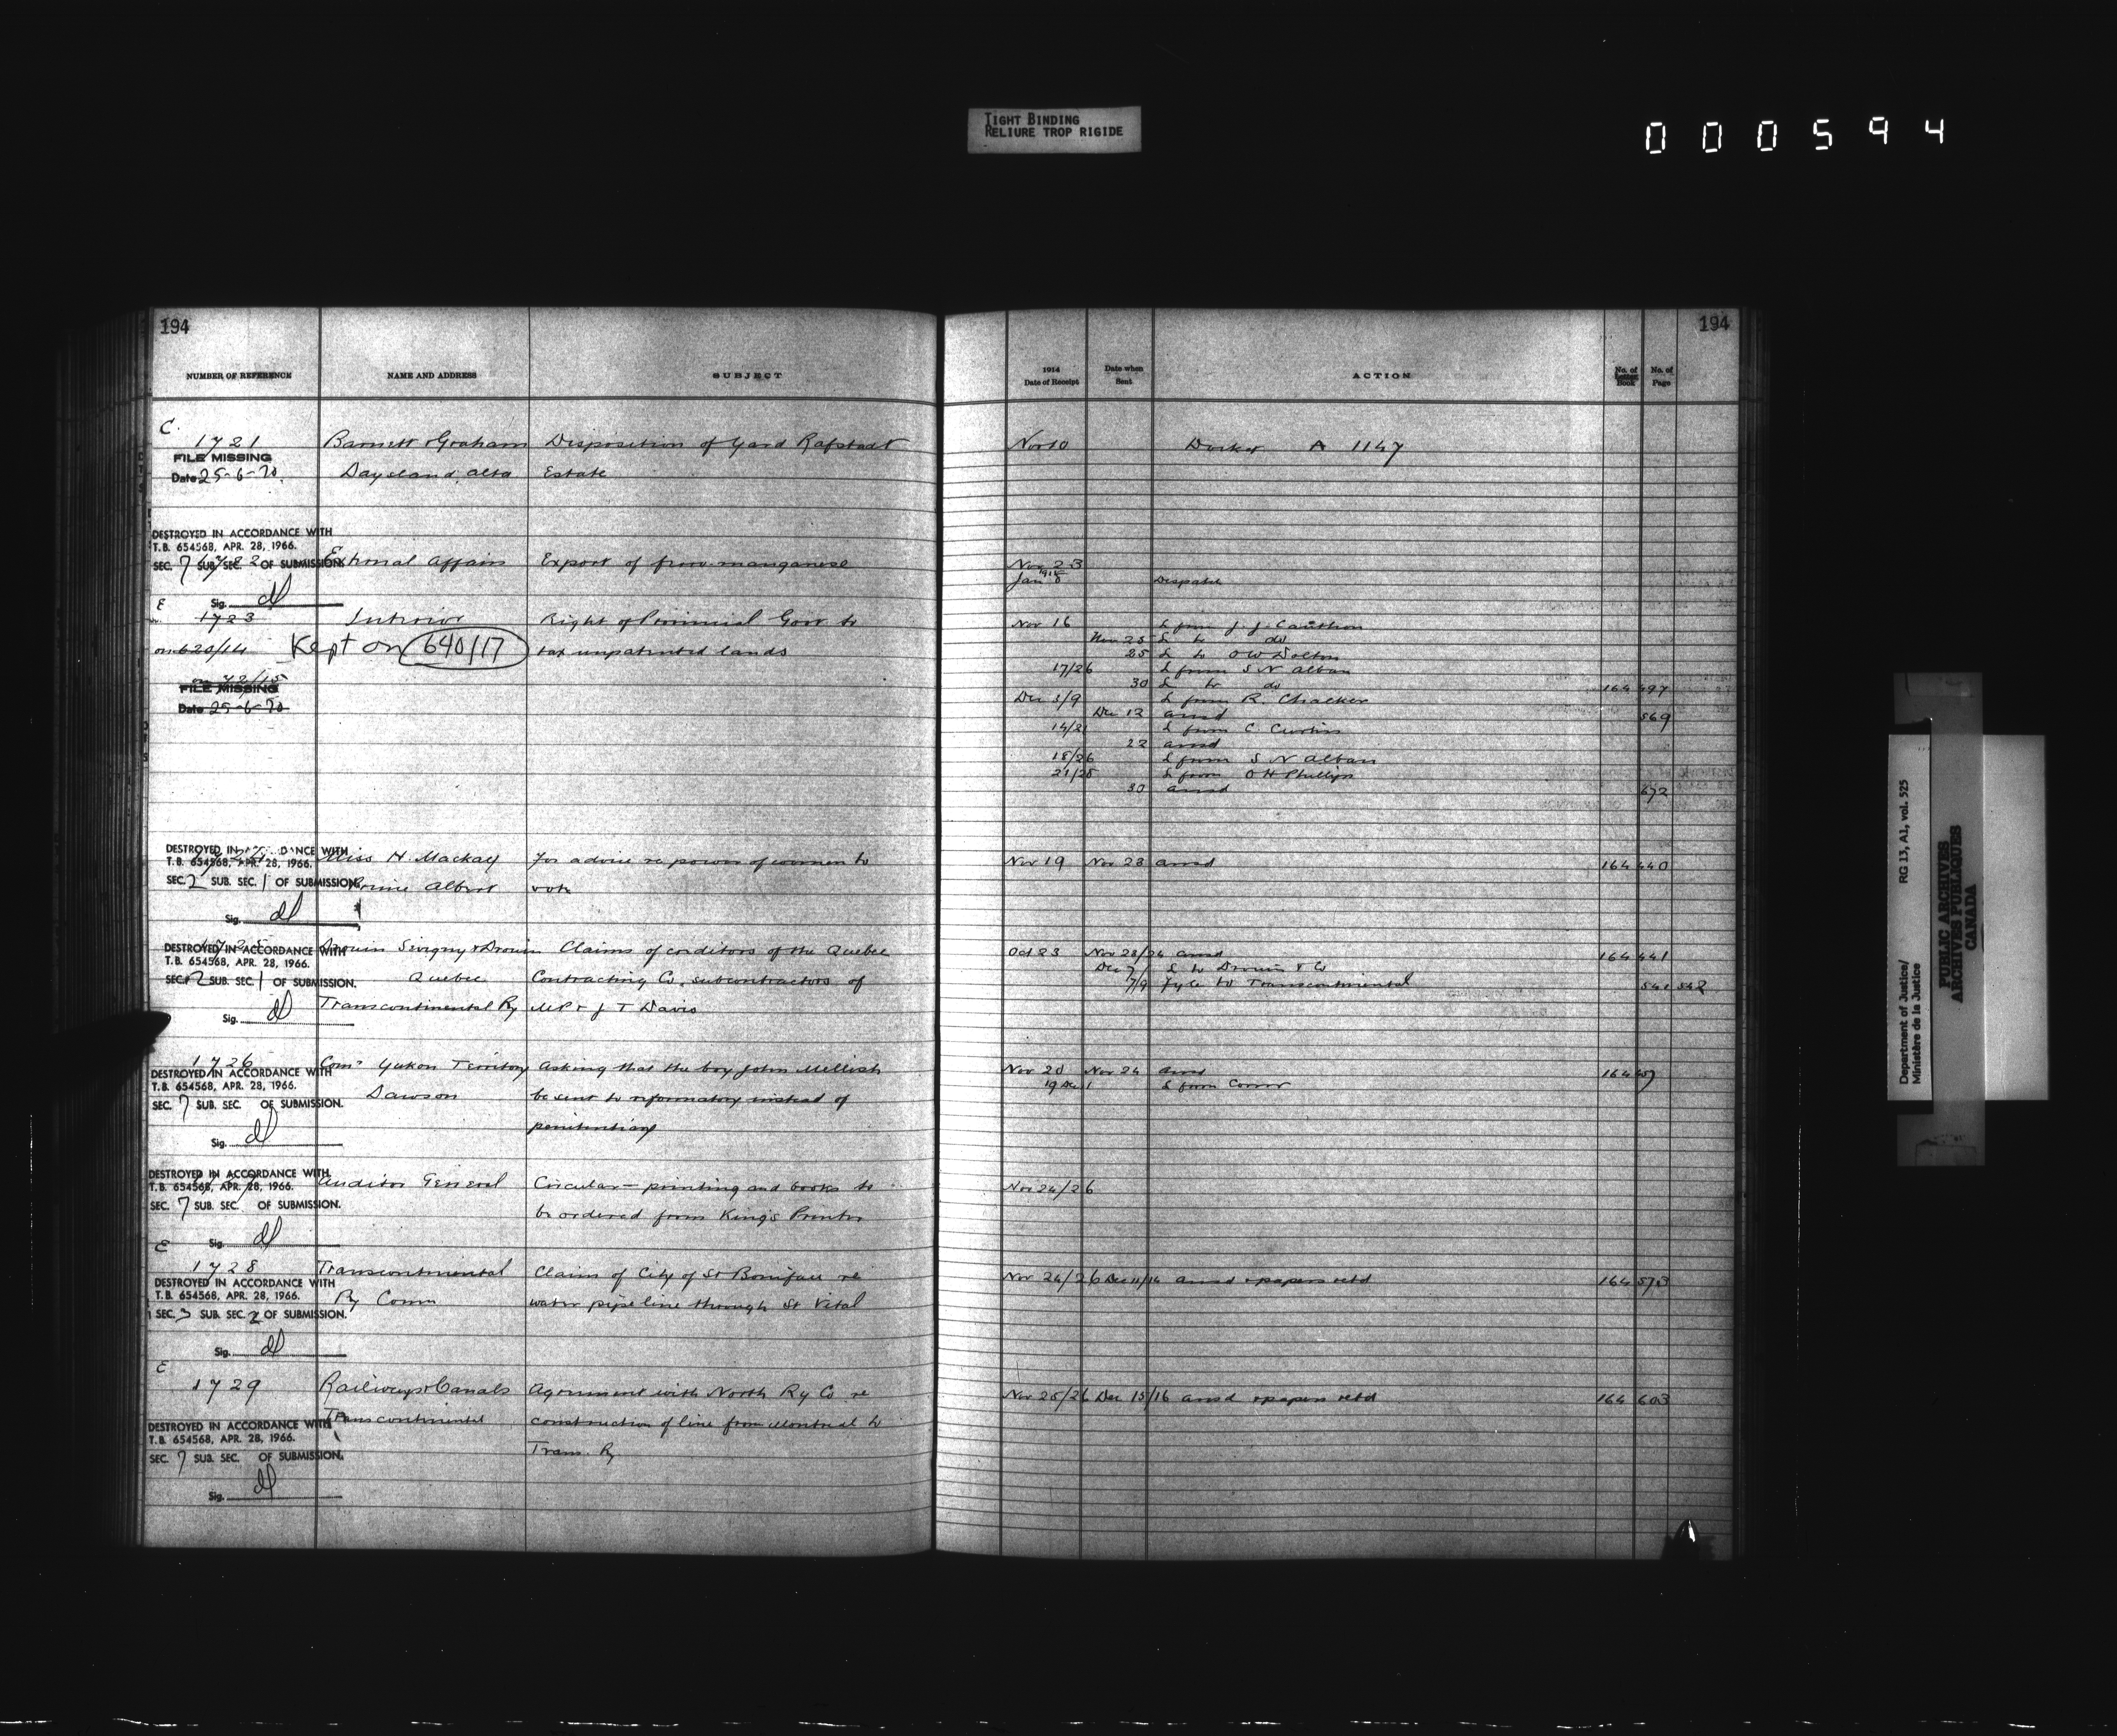 TIGHT BINDING
RELIURE TROP RIGIDE
000594
194
NUMBER OF REFERENCE NAME AND ADDRESS SUBJECT
C.
1721 Barnett & Graham Disposition of Yard Rafstadt
FILE MISSING
Date 25-6-70. Daysland, Alta Estate
DESTROYED IN ACCORDANCE WITH
T.B. 654568, APR. 28, 1966.
SEC. 7 SUB. SEC. OF SUBMISSION.
1722 External Affairs Export of ferro manganese
Sig. dl
E
1723 Interior Right of Provincial Govt to
on 620/14 Kept on 640/17 tax unpatented lands
on 42/15
FILE MISSING
Date 25-6-70
DESTROYED IN ACCORDANCE WITH
T.B. 654568, APR. 28, 1966. Miss H Mackay For advice re power of women to
SEC. 2 SUB. SEC. 1 OF SUBMISSION. Prince Albert vote
Sig. dl
DESTROYED IN ACCORDANCE WITH Drouin Sevigny & Drouin Claims of creditors of the Quebec
T.B. 654568, APR. 28, 1966.
SEC. 2 SUB. SEC. 1 OF SUBMISSION. Quebec Contracting Co. subcontractors of
Transcontinental Ry MP & J T Davis
Sig. dl
1726 Comr Yukon Territory Asking that the boy John Mellish
DESTROYED IN ACCORDANCE WITH
T.B. 654568, APR. 28, 1966. Dawson be sent to reformatory instead of
SEC. 7 SUB. SEC. OF SUBMISSION.
penitentiary
Sig. dl
DESTROYED IN ACCORDANCE WITH
T.B. 654568, APR. 28, 1966. Auditor General Circular — printing and books to
SEC. 7 SUB. SEC. OF SUBMISSION.
be ordered from King's Printer
Sig. dl
E
1728 Transcontinental Claim of City of St Boniface re
DESTROYED IN ACCORDANCE WITH
T.B. 654568, APR. 28, 1966. Ry Comm water pipe line through St Vital
SEC. 3 SUB. SEC. 2 OF SUBMISSION.
Sig. dl
E
1729 Railways & Canals Agreement with North Ry Co re
Transcontinental construction of line from Montreal to
DESTROYED IN ACCORDANCE WITH
T.B. 654568, APR. 28, 1966.
Trans. Ry
SEC. 7 SUB. SEC. OF SUBMISSION.
Sig. dl
194
1914
Date of Receipt Date when Sent ACTION No. of Letter Book No. of Page
Nov 10 A 1147
Nov 23
1915
Jan 8 Despatch
Nov 16 L from J. J.
Nov 25 L to do
25 L to O W Dolton
17/26 L from S N Alban
30 L to do 164 497
Dec 3/9 L from R. Chacker
Dec 12 ansd 569
14/21 L from C. Curtin
22 ansd
18/26 L from S N Alban
21/28 L from O H Phillips
30 ansd 672
Nov 19 Nov 23 ansd 164 440
Oct 23 Nov 23/24 ansd 164 441
Dec 7 L to Drouin & Co
7/9 Fyle to Transcontinental 541 542
Nov 20 Nov 24 ansd 164 457
19 Dec 1 L from Comr
Nov 24/26
Nov 24/26 Dec 11/14 ansd & papers retd 164 573
Nov 25/26 Dec 15/16 ansd & papers retd 164 603
Department of Justice/ RG 13, A1, vol. 525
Ministère de la Justice
PUBLIC ARCHIVES
ARCHIVES PUBLIQUES
CANADA